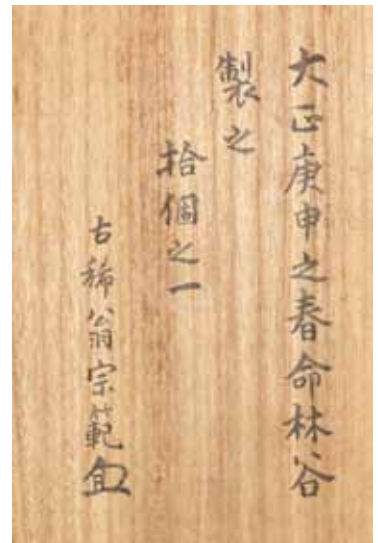 大正庚申之春命林谷
製之
拾個之一
古稀翁宗範